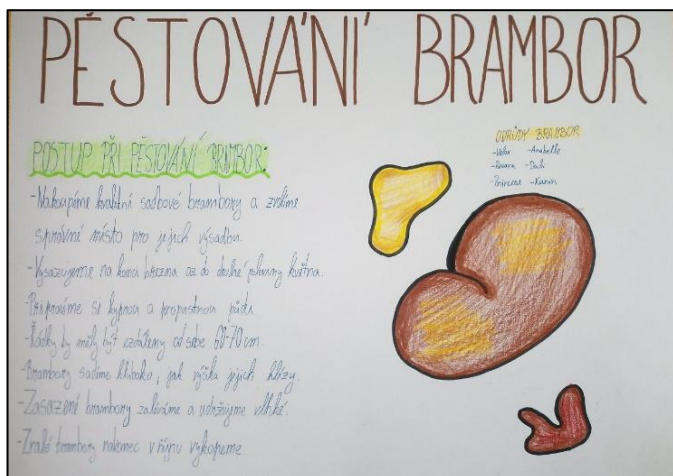 PĚSTOVÁNÍ BRAMBOR
POSTUP PŘI PĚSTOVÁNÍ BRAMBOR:
-Nakoupíme kvalitní sadbové brambory a zvolíme
správné místo pro jejich výsadbu.
-Vysazujeme na konci března až do druhé poloviny května.
-Připravíme si kyprou a propustnou půdu.
-Řádky by měly být vzdáleny od sebe 60-70 cm.
-Brambory sadíme hluboko, jak výška jejich hlízy.
-Zasazené brambory zaléváme a udržujme vlhké.
-Zralé brambory nakonec v říjnu vykopeme.
ODRŮDY BRAMBOR
-Anabelle
-Rosara -Dali
-Princess